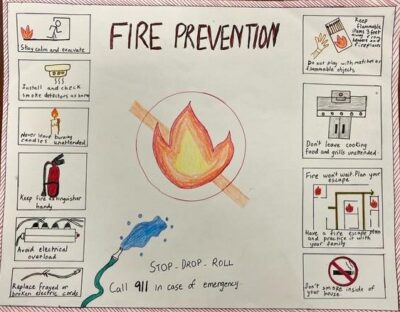 FIRE PREVENTION
Stay calm and evacuate
Install and check
smoke detectors at home
Never leave burning
candles unattended
Keep fire extinguisher
handy
Avoid electrical
overload
Replace frayed or
broken electric cords
Keep
flammable
items 3 feet
away from
heaters and
fireplaces
Do not play with matches or
flammable objects
Don't leave cooking
food and grills unattended
Fire won't wait. Plan your
escape
Have a fire escape plan
and practice it with
your family
Don't smoke inside of
your house
STOP-DROP-ROLL
Call 911 in case of emergency